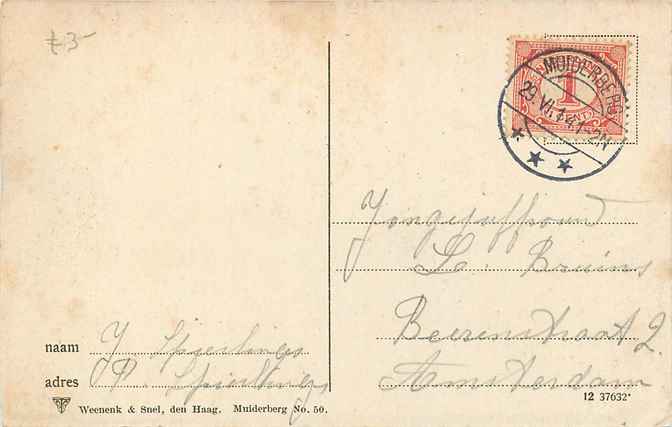 £3-
MUIDERBERG
29.VI.14.1-2N
1
CENT
L. Bruins
Beerenstraat 2
Amsterdam
naam J Spierlings
adres P. Spierlings
Weenenk & Snel, den Haag. Muiderberg No. 50.
12 37632*